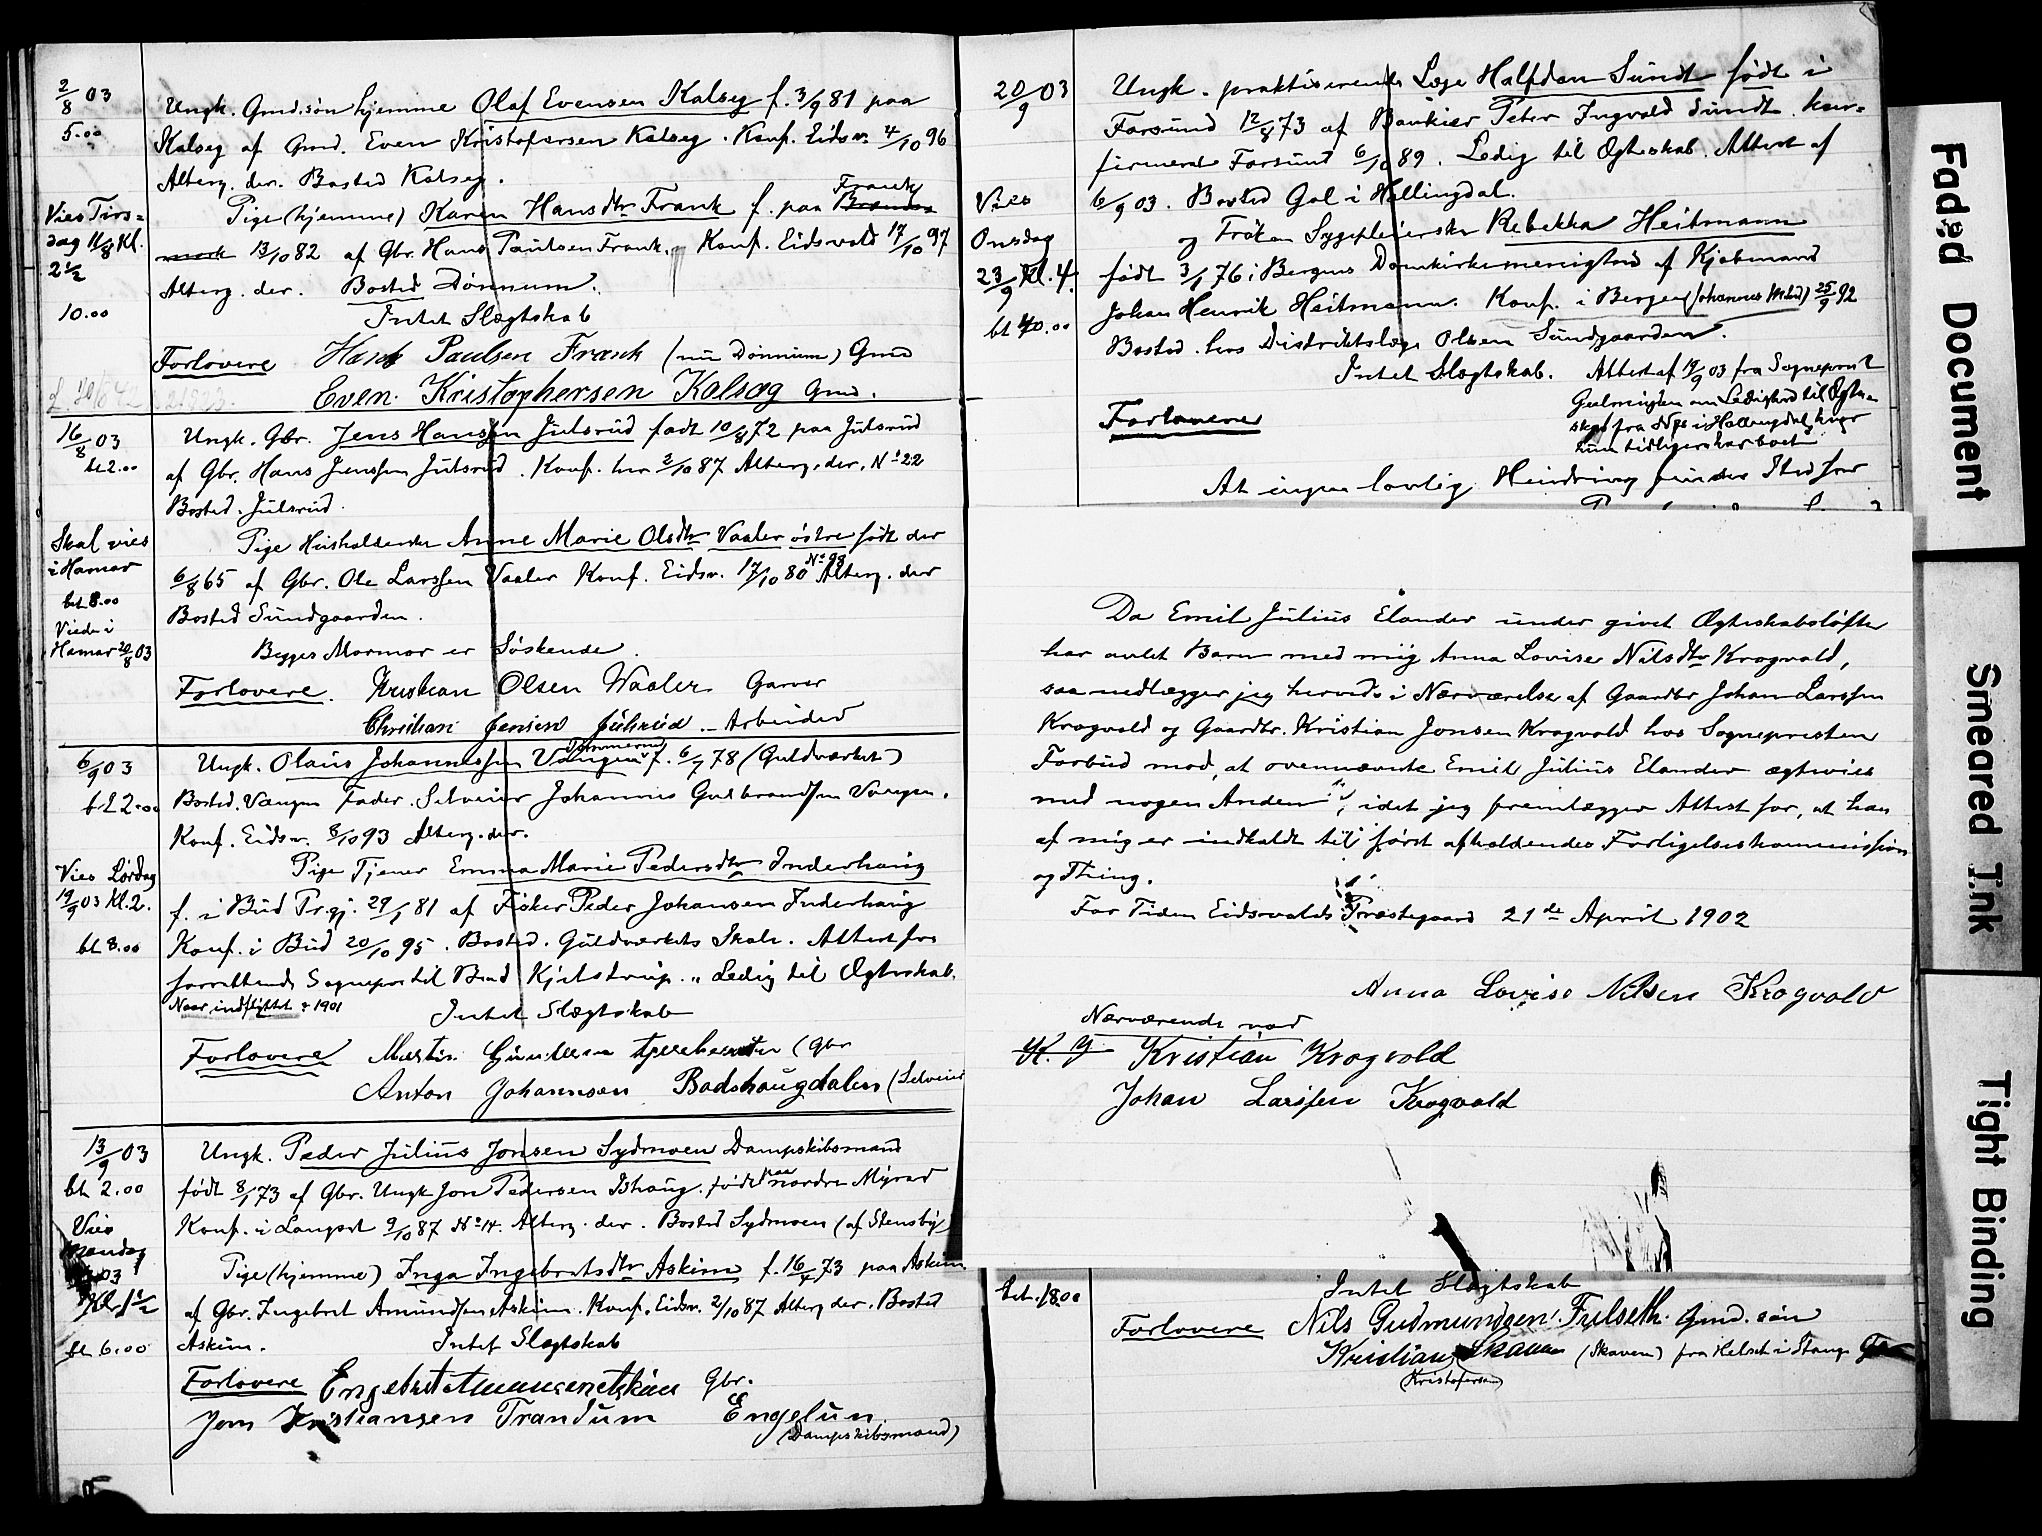 2/8 03
5.00
Ungk. Gmd.søn hjemme Olaf Evensen Kalseg f. 3/9 81 paa
Kalseg af Gmd. Even Kristofersen Kalseg. Konf. Eidsv. 4/10 96
Alterg. der. Bosted Kalseg.
Vies Tirs=
dag 11/8 Kl.
2 1/2
10.00
Pige (hjemme) Karen Hansdtr Frank f. paa Frank
13/10 82 af Gbr. Hans Paulsen Frank. Konf. Eidsvold 17/10 97
Alterg. der. Bosted Dönnum.
Intet Slægtskab
Forlovere Hans Paulsen Frank (nu Dönnum) Gmd
Even Kristophersen Kalsæg Gmd.
16/8 03
bt 2.00
Ungk. Gbr. Jens Hanssen Julsrud født 10/8 72 paa Julsrud
af Gbr. Hans Jenssen Julsrud. Konf. her 2/10 87 Alterg. der. No 22
Bosted Julsrud.
Skal vies
i Hamar
bet 8.00
Viede i
Hamar 20/8 03
Pige Husholderske Anne Marie Olsdtr Vaaler østre født der
6/8 65 af Gbr. Ole Larssen Vaaler Konf. Eidsv. 17/10 80 No 98 Alterg. der
Bosted Sundgaarden.
Begges Mormor er Søskende.
Forlovere. Kristian Olsen Waaler Garver
Christian Jensen Julsrud - Arbeider
6/9 03
bt 2.00
Ungk. Olaus Johannessen Vangen Tømmermd f. 6/7 78 (Guldværket)
Bosted. Vangen Fader. Selveier Johannes Gulbrandsen Vangen.
Konf. Eidsv. 8/10 93 Alterg. der.
Vies Lørdag
19/9 03 Kl. 2.
bt 8.00
Pige Tjener Emma Marie Pedersdtr Inderhaug
f. i Bud Prgj. 29/1 81 af Fisker Peder Johansen Inderhaug
Konf. i Bud 20/10 95. Bosted. Guldværkets Skole. Attest fra
forrettende Sogneprest til Bud Kjelstrup. „ Ledig til Ægteskab.
Naar indflyttet? 1901
Intet Slægtskab
Forlovere Martin (Gbr
Anton Johannsen Badshaugdalen (Selveier
13/9 03
bt 2.00
Ungk. Peder Julius Jonsen Sydmoen Dampskibsmand
født 8/1 73 af Gbr. Ungk Jon Pedersen Ishaug. født paa nordre Myrer
Konf. i Langset 9/10 87 No 14. Alterg. der. Bosted Sydmoen (af Stensby)
Vies
Mandag
03
Kl. 1 1/2
bt 6.00
Pige (hjemme) Inga Ingebretsdtr Askim f. 16/4 73 paa Askim
af Gbr. Ingebret Amundsen Askim. Konf. Eidsv. 2/10 87 Alterg. der. Bosted
Askim. Intet Slægtskab
Forlovere Engebret Amunsen Askim Gbr.
Jens Kristiansen Trandum Engelun.
(Dampskibsmand)
20/9 03
Ungk. praktiserende Læge Halfdan Sundt født i
Farsund 12/8 73 af Bankier Peter Ingvald Sundt. kon=
firmeret Farsund 6/10 89. Ledig til Ægteskab. Attest af
6/9 03. Bosted Gol i Hallingdal.
Vies
Onsdag
23/9 Kl. 4.
bt 40.00
og Frøken Sygepleierske Rebekka Heitmann
født 3/1 76 i Bergens Domkirkemenighed af Kjøbmand
Johan Henrik Heitmann. Konf. i Bergen (Johannes Mhed) 25/9 92
Bosted hos Distriktslæge Olsen Sundgaarden.
Intet Slægtskab. Attest af 19/9 03 fra Sogneprest
om Ledighed til Ægte=
skab fra Næs i Hallingdal, hvor
hun tidligere har boet
Forlovere
At ingen lovlig Hindring finder Sted for
Da Emil Julius Elander under givet Ægteskabsløfte
har avlet Barn med mig Anna Lovise Nilsdtr Krogvold,
saa nedlægger jeg herved i Nærværelse af Gaardbr Johan Larssen
Krogvold og Gaardbr. Kristian Jonsen Krogvold hos Sognepresten
Forbud mod, at ovennævnte Emil Julius Elander ægtevies
med nogen Anden, idet jeg fremlægger Attest for, at han
af mig er indkaldt til først afholdendes Forligelseskommission
og Thing.
For Tiden Eidsvolds Præstegaard 21de April 1902
Anna Lovise Nilsen Krogvold
Nærværende ved
K. J. Kristian Krogvold
Johan Larssen Krogvold
bet. 18.00
Intet Slægtskab
Forlovere Nils Gudmundsen Fulseth. Gmd. søn
Kristian Skauen (Skaven) fra Helset i Stange
(Kristofersen)
Faded Document
Smeared Ink
Tight Binding